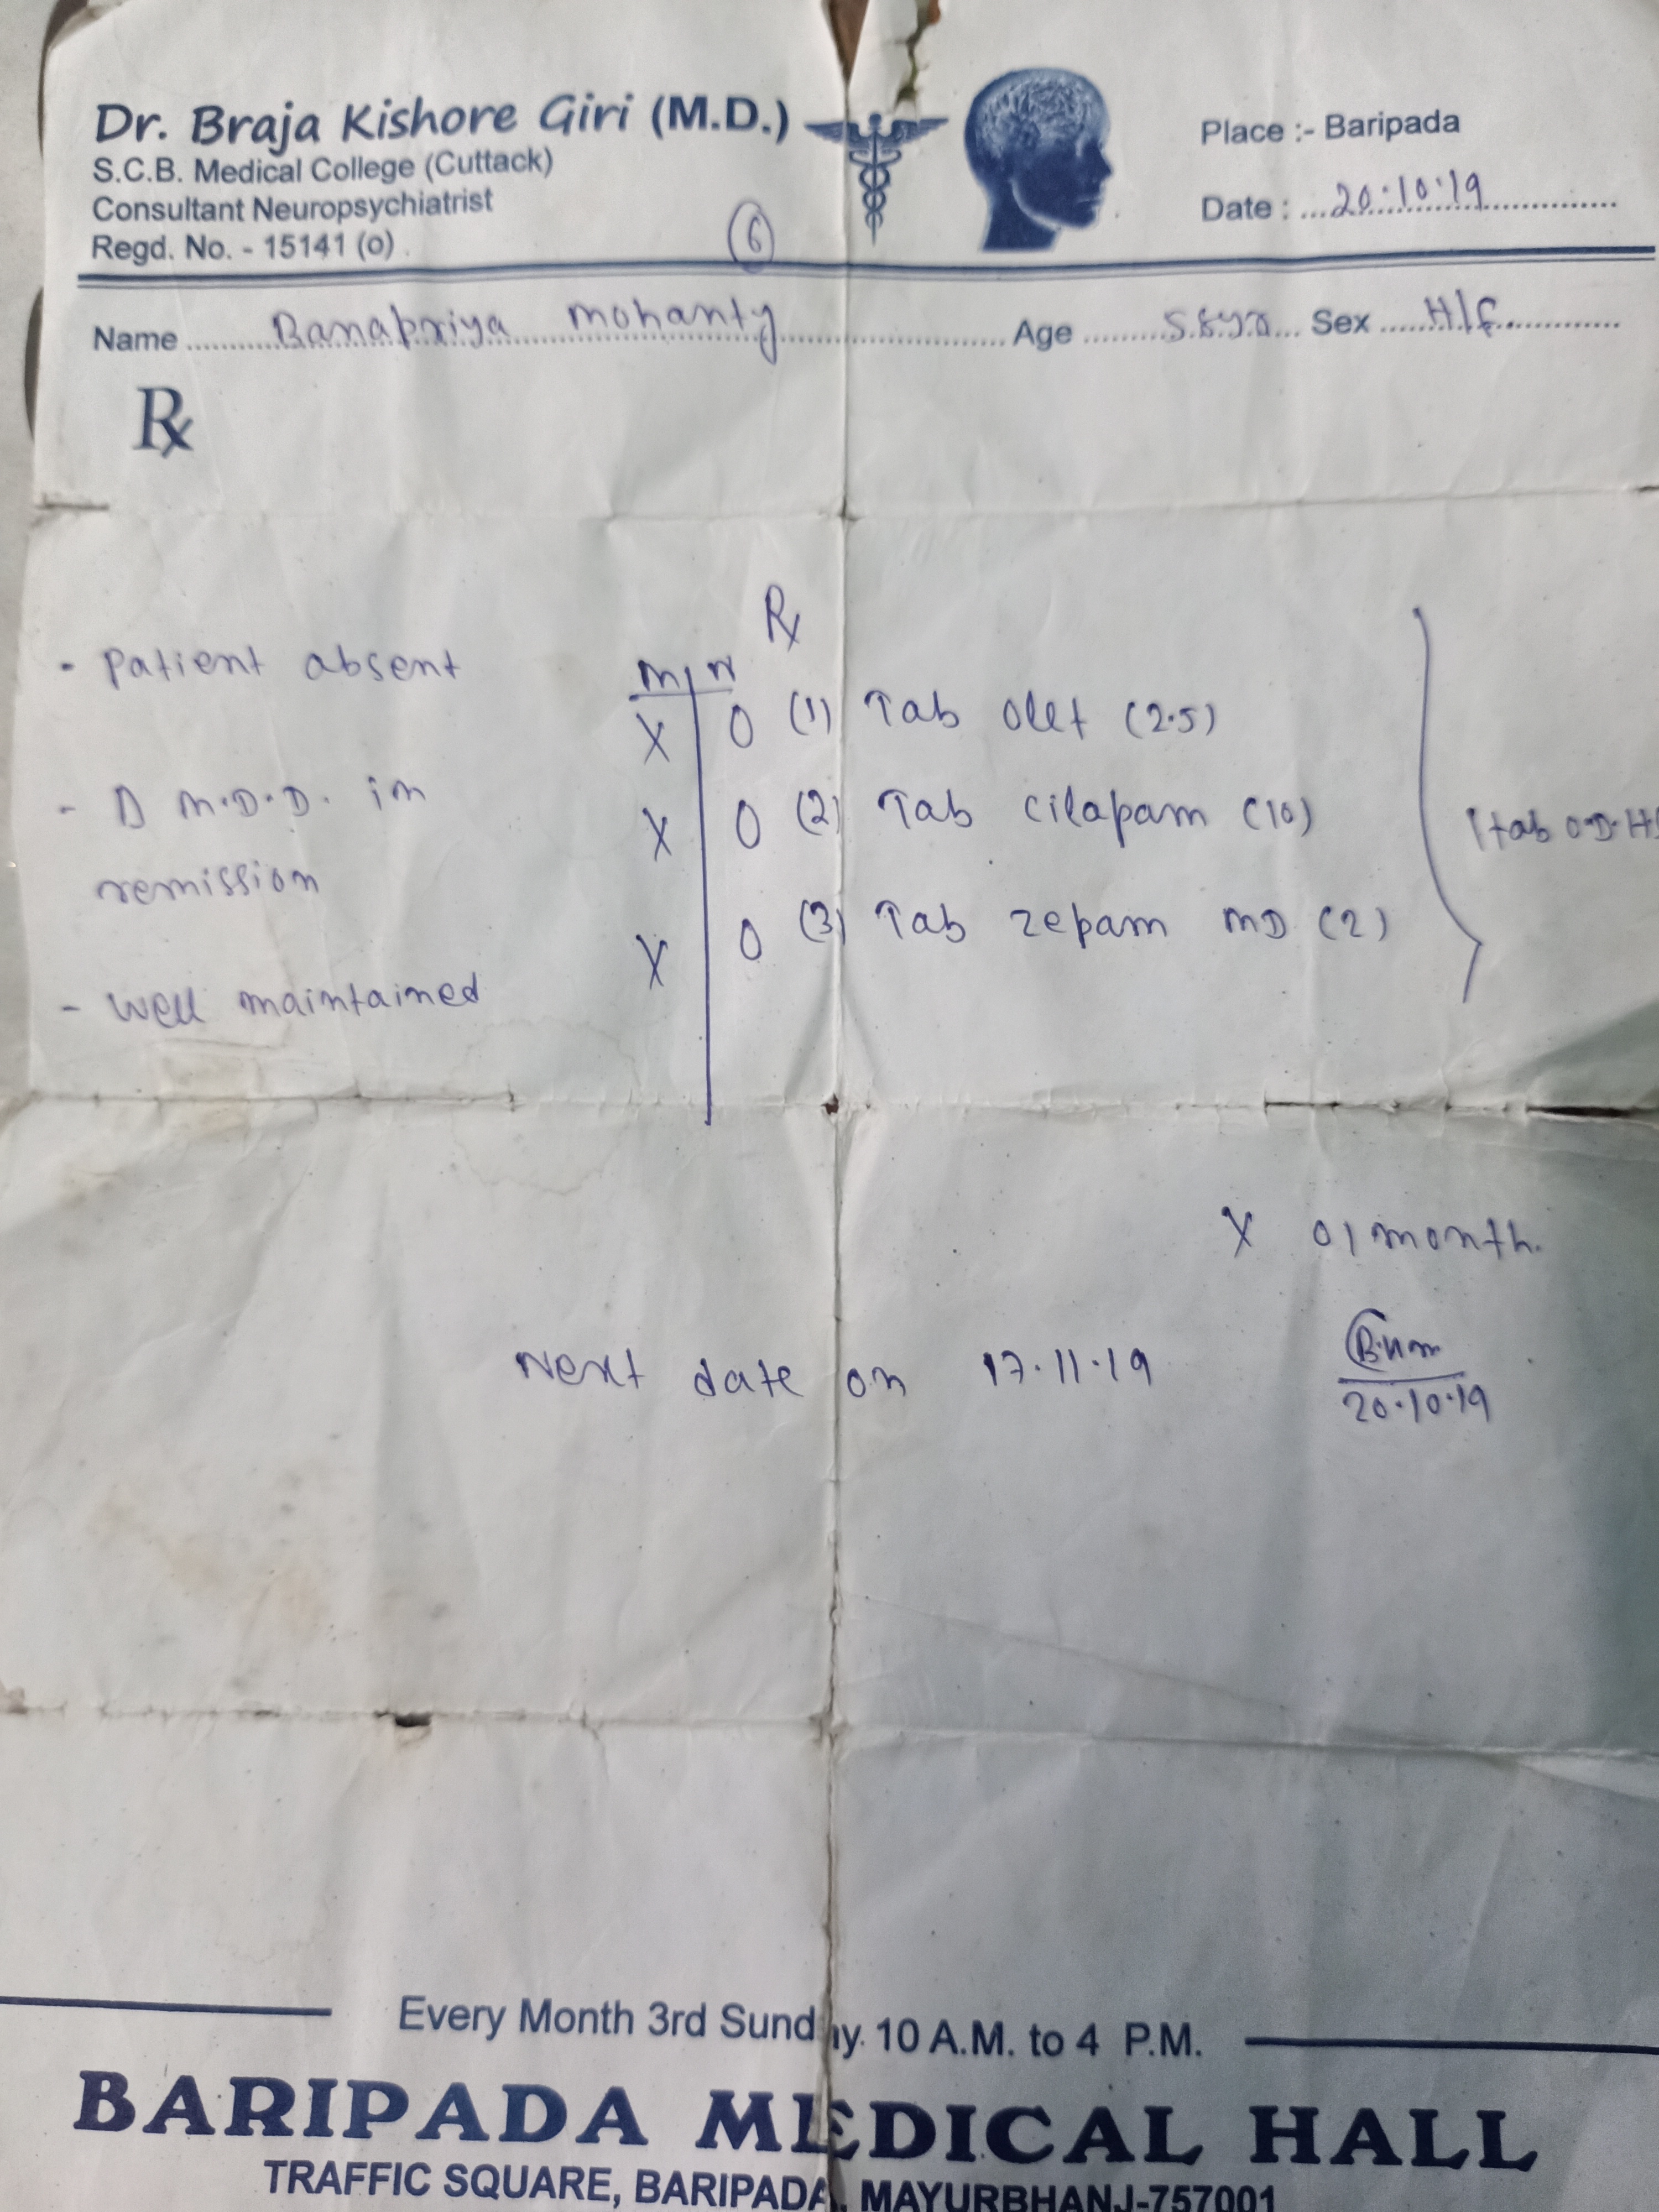 Dr. Braja Kishore Giri (M.D.)
S.C.B. Medical College (Cuttack)
Consultant Neuropsychiatrist
Regd. No. - 15141 (o)
6
Place :- Baripada
Date : 20.10.19
Name Banapriya mohanty Age 58yrs Sex H/F
Rx
Rx
- Patient absent
- D M.D.D. in
remission
- Well maintained
M N
X 0 (1) Tab Olet (2.5)
X 0 (2) Tab cilapam (10)
X 0 (3) Tab zepam MD (2)
1 tab O.D. H
X 01 month.
Next date on 17.11.19
20.10.19
Every Month 3rd Sunday. 10 A.M. to 4 P.M.
BARIPADA MEDICAL HALL
TRAFFIC SQUARE, BARIPADA, MAYURBHANJ-757001